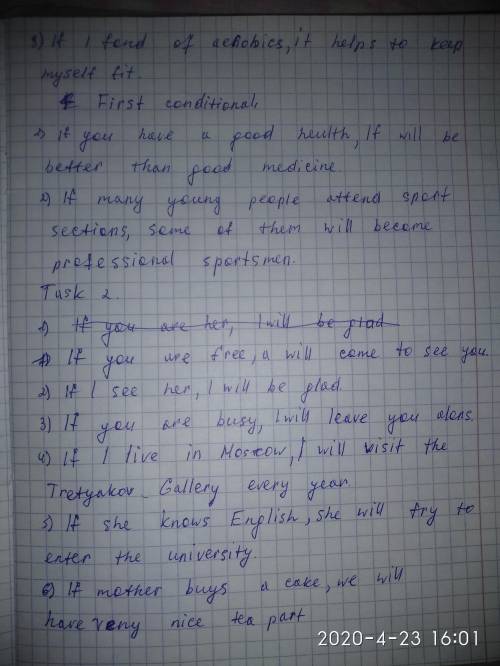 3) If I fond of aerobics, it helps to keep
myself fit.
First conditional.
1) if you have a good health, If will be
better than good medicine.
2) If many young people attend sport
sections, some of them will become
professional sportsmen.
Task 2.
1) If you are her, I will be glad
1) If you are free, a will come to see you.
2) If I see her, I will be glad.
3) If you are busy, I will leave you alons.
4) If I live in Moscow, I will visit the
Tretyakov Gallery every year.
5) If she knows English, she will try to
enter the university.
6) If mother buys a cake, we will
have very nice tea part
2020-4-23 16:01